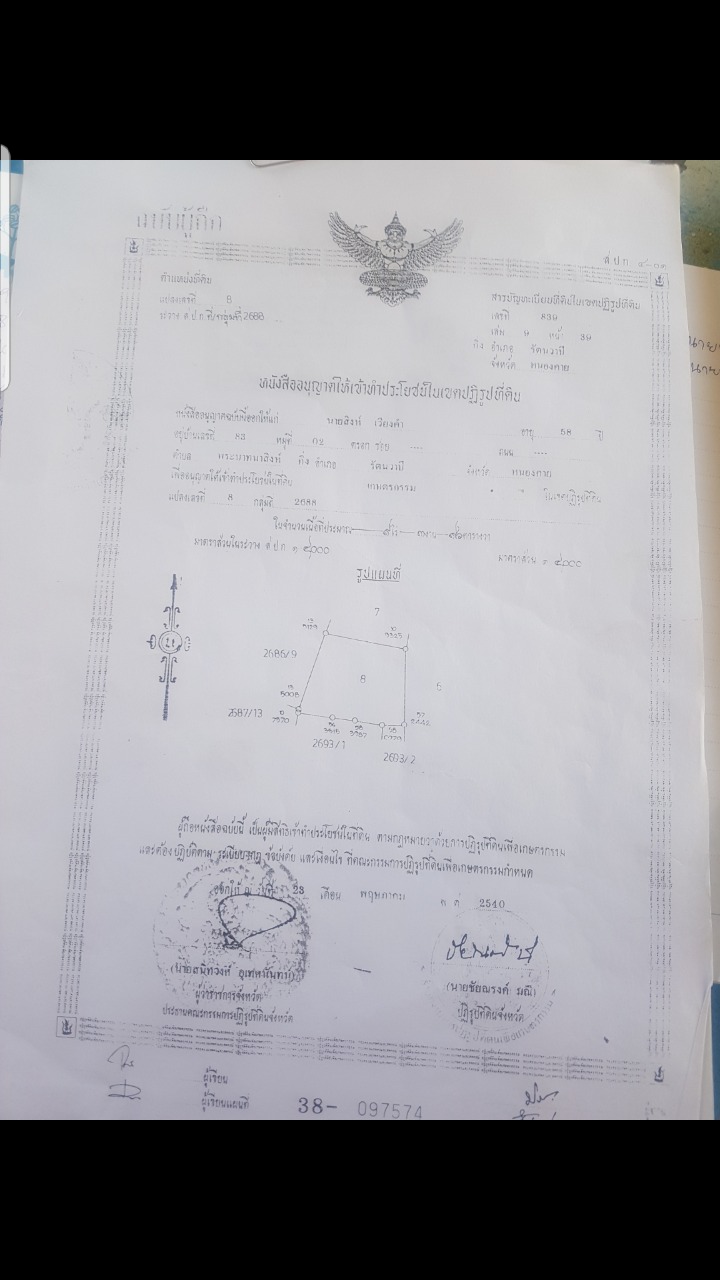 ส.ป.ก. ๔-๐๑
ตำแหน่งที่ดิน
แปลงเลขที่ 8
ระวาง ส.ป.ก.ที่/กลุ่มที่ 2688
สารบัญทะเบียนที่ดินในเขตปฏิรูปที่ดิน
เลขที่ 839
เล่ม 9 หน้า 39
กิ่ง อำเภอ รัตนวาปี
จังหวัด หนองคาย
หนังสืออนุญาตให้เข้าทำประโยชน์ในเขตปฏิรูปที่ดิน
หนังสืออนุญาตฉบับนี้ออกให้แก่ นายสิงห์ เวียงคำ อายุ 58 ปี
อยู่บ้านเลขที่ 83 หมู่ที่ 02 ตรอก ซอย .... ถนน ....
ตำบล พระบาทนาสิงห์ กิ่ง อำเภอ รัตนวาปี จังหวัด หนองคาย
เพื่ออนุญาตให้เข้าทำประโยชน์ในที่ดิน เกษตรกรรม ในเขตปฏิรูปที่ดิน
แปลงเลขที่ 8 กลุ่มที่ 2688
ในจำนวนเนื้อที่ประมาณ ไร่ งาน ตารางวา
มาตราส่วนในระวาง ส.ป.ก. ๑:๔๐๐๐
มาตราส่วน ๑:๔๐๐๐
รูปแผนที่
7
2686/9
8
6
2687/13
2693/1
2693/2
ผู้ถือหนังสือฉบับนี้ เป็นผู้มีสิทธิเข้าทำประโยชน์ในที่ดิน ตามกฎหมายว่าด้วยการปฏิรูปที่ดินเพื่อเกษตรกรรม
และต้องปฏิบัติตาม ระเบียบ ข้อบังคับ และเงื่อนไข ที่คณะกรรมการปฏิรูปที่ดินเพื่อเกษตรกรรมกำหนด
ออกให้ ณ วันที่ 23 เดือน พฤษภาคม พ ศ 2540
(นายชัยณรงค์ มณี)
ผู้ว่าราชการจังหวัด
ปฏิรูปที่ดินจังหวัด
ประธานคณะกรรมการปฏิรูปที่ดินจังหวัด
ผู้เขียน
ผู้เขียนแผนที่
38- 097574